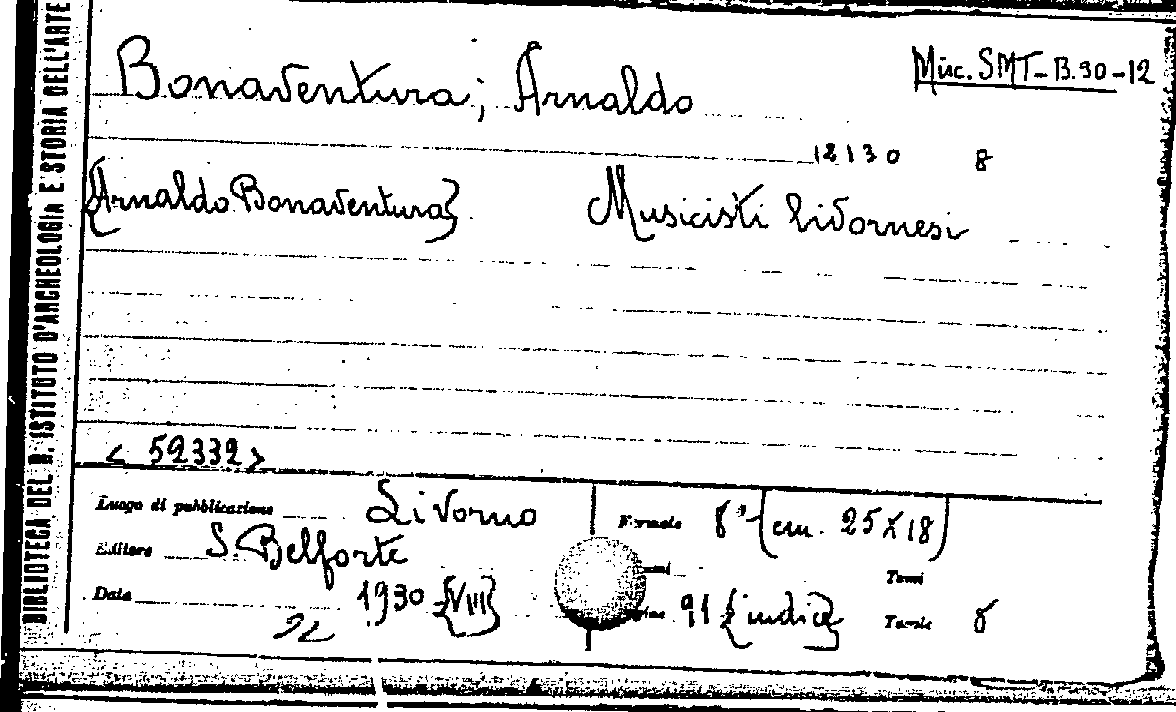 BIBLIOTECA DEL R. ISTITUTO D'ARCHEOLOGIA E STORIA DELL'ARTE
Bonaventura, Arnaldo
Misc. SMT-B.30-12
12130 8
{Arnaldo Bonaventura} Musicisti livornesi
< 52332 >
Luogo di pubblicazione Livorno
Formato 8° (cm. 25X18)
Editore S. Belforte
Tomi
Data 1930 {VIII}
91 {indice} Tavole 8